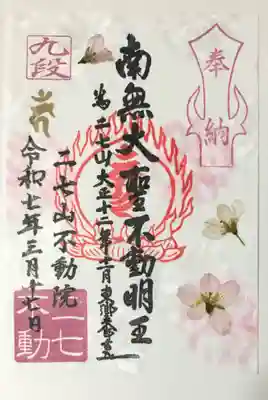 奉納
南無大聖不動明王
為二七山大正十二年十一月東郷書
九段
二七山不動院
令和七年三月十七日
二七
不動